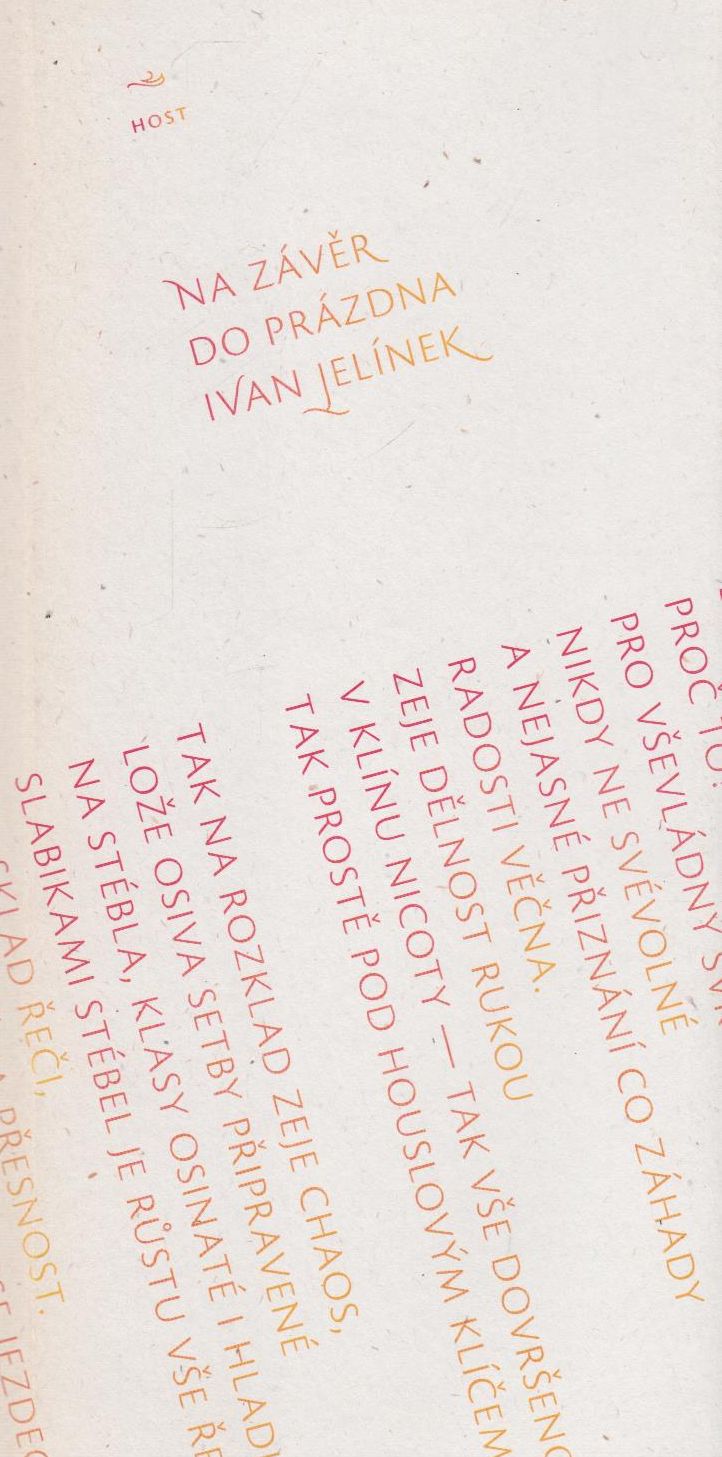 HOST
NA ZÁVĚR
DO PRÁZDNA
IVAN JELÍNEK
PROČ TU?
PRO VŠEVLÁDNÝ
NIKDY NE SVÉVOLNÉ
A NEJASNÉ PŘIZNÁNÍ CO ZÁHADY
RADOSTI VĚČNA.
ZEJE DĚLNOST RUKOU
V KLÍNU NICOTY — TAK VŠE DOVRŠENO
TAK PROSTĚ POD HOUSLOVÝM KLÍČEM
TAK NA ROZKLAD ZEJE CHAOS,
LOŽE OSIVA SETBY PŘIPRAVENÉ
NA STÉBLA, KLASY OSINATÉ I HLADI
SLABIKAMI STÉBEL JE RŮSTU VŠE ŘE
SKLAD ŘEČI,
A PŘESNOST.
SE JEZDEC